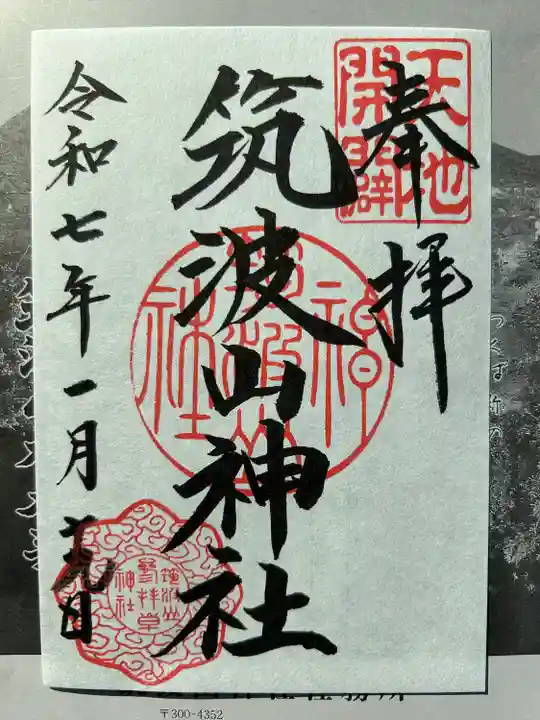 奉拝
天地
開闢
筑波山神社
令和七年一月
日
筑波山
参拝章
神社
〒300-4352